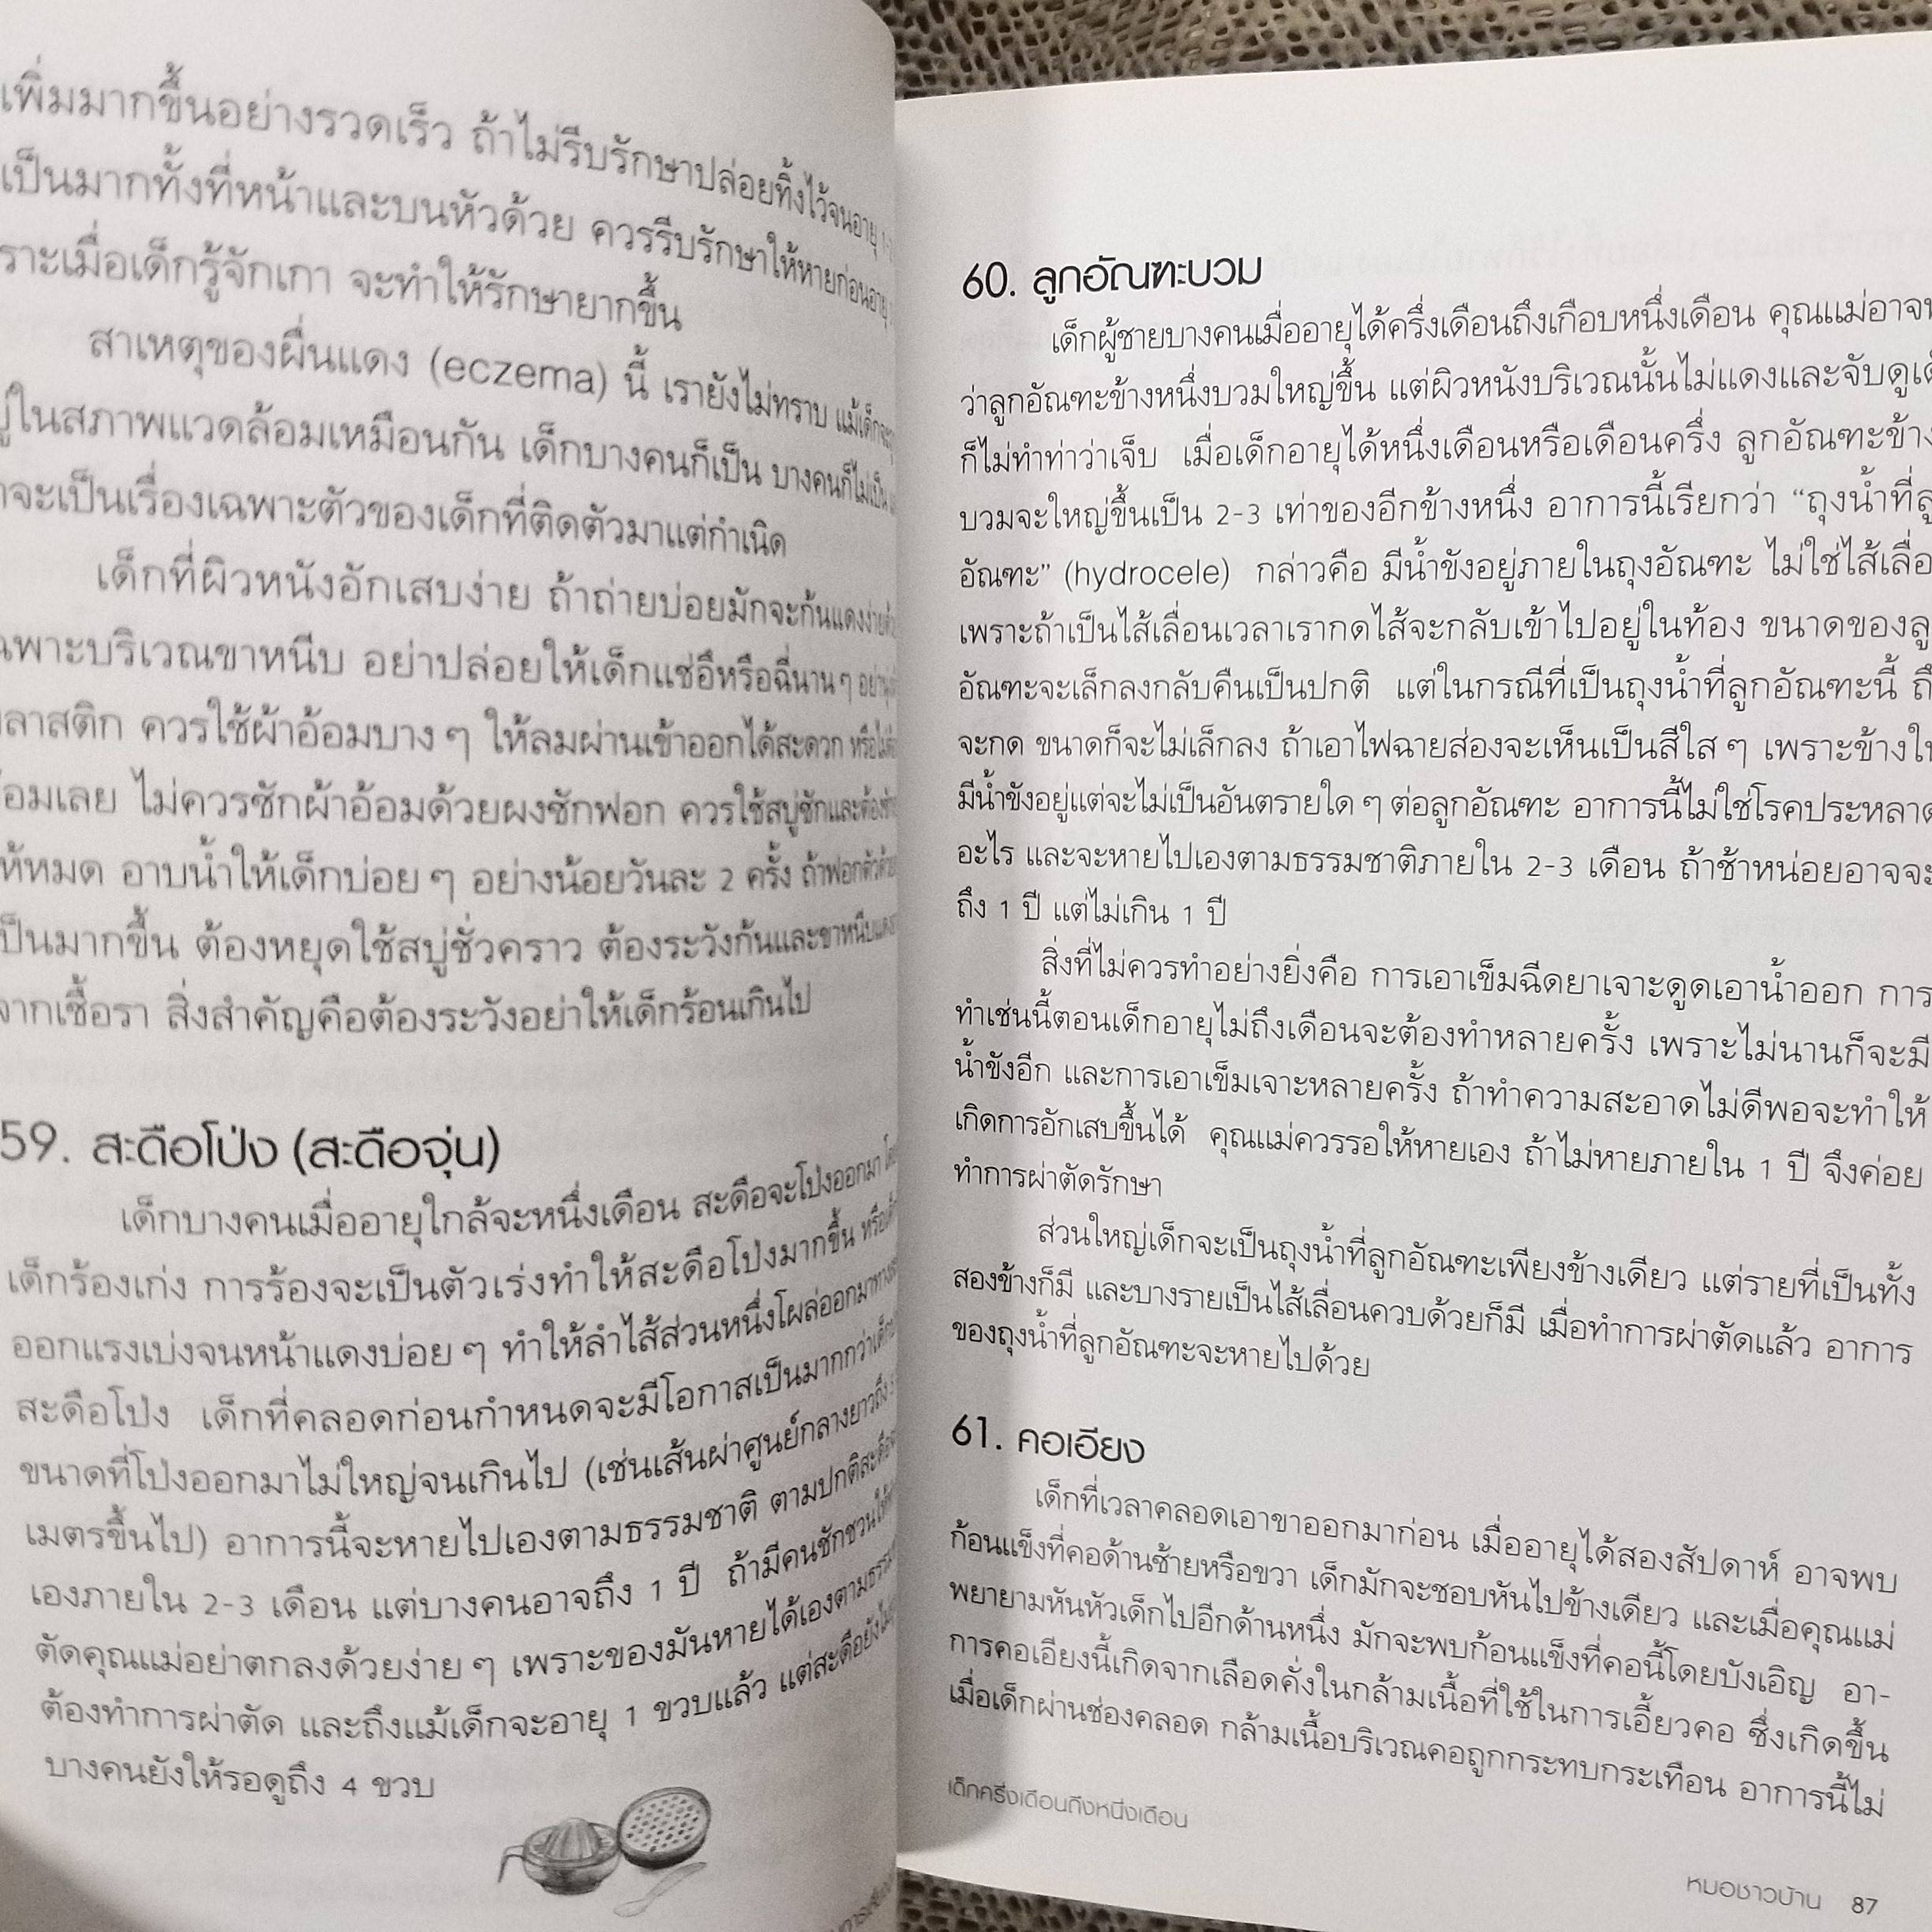 เพิ่มมากขึ้นอย่างรวดเร็ว ถ้าไม่รีบรักษาปล่อยทิ้งไว้จนอายุ
เป็นมากทั้งที่หน้าและบนหัวด้วย ควรรีบรักษาให้หายก่อนอายุ
ราะเมื่อเด็กรู้จักเกา จะทำให้รักษายากขึ้น
สาเหตุของผื่นแดง (eczema) นี้ เรายังไม่ทราบ แม้เด็กจะ
ในสภาพแวดล้อมเหมือนกัน เด็กบางคนก็เป็น บางคนก็ไม่เป็น
จะเป็นเรื่องเฉพาะตัวของเด็กที่ติดตัวมาแต่กำเนิด
เด็กที่ผิวหนังอักเสบง่าย ถ้าถ่ายบ่อยมักจะก้นแดงง่าย
ฉพาะบริเวณขาหนีบ อย่าปล่อยให้เด็กแช่อึหรือฉี่นานๆ
ลาสติก ควรใช้ผ้าอ้อมบางๆ ให้ลมผ่านเข้าออกได้สะดวก
อมเลย ไม่ควรซักผ้าอ้อมด้วยผงซักฟอก ควรใช้สบู่ซักและต้อง
ห้หมด อาบน้ำให้เด็กบ่อยๆ อย่างน้อยวันละ 2 ครั้ง ถ้าฟอกตัว
ป็นมากขึ้น ต้องหยุดใช้สบู่ชั่วคราว ต้องระวังก้นและขาหนีบ
จากเชื้อรา สิ่งสำคัญคือต้องระวังอย่าให้เด็กร้อนเกินไป
59. สะดือโป่ง (สะดือจุ่น)
เด็กบางคนเมื่ออายุใกล้จะหนึ่งเดือน สะดือจะโป่งออกมา
เด็กร้องเก่ง การร้องจะเป็นตัวเร่งทำให้สะดือโป่งมากขึ้น
ออกแรงเบ่งจนหน้าแดงบ่อยๆ ทำให้ลำไส้ส่วนหนึ่งโผล่ออกมาทาง
สะดือโป่ง เด็กที่คลอดก่อนกำหนดจะมีโอกาสเป็นมากกว่า
ขนาดที่โป่งออกมาไม่ใหญ่จนเกินไป (เช่นเส้นผ่าศูนย์กลางยาวถึง
เมตรขึ้นไป) อาการนี้จะหายไปเองตามธรรมชาติ ตามปกติ
เองภายใน 2-3 เดือน แต่บางคนอาจถึง 1 ปี ถ้ามีคนชักชวน
ตัดคุณแม่อย่าตกลงด้วยง่ายๆ เพราะของมันหายได้เองตาม
ต้องทำการผ่าตัด และถึงแม้เด็กจะอายุ 1 ขวบแล้ว แต่สะดือยัง
บางคนยังให้รอดูถึง 4 ขวบ
60. ลูกอัณฑะบวม
เด็กผู้ชายบางคนเมื่ออายุได้ครึ่งเดือนถึงเกือบหนึ่งเดือน คุณแม่อาจ
ว่าลูกอัณฑะข้างหนึ่งบวมใหญ่ขึ้น แต่ผิวหนังบริเวณนั้นไม่แดงและจับดู
ก็ไม่ทำท่าว่าเจ็บ เมื่อเด็กอายุได้หนึ่งเดือนหรือเดือนครึ่ง ลูกอัณฑะข้าง
บวมจะใหญ่ขึ้นเป็น 2-3 เท่าของอีกข้างหนึ่ง อาการนี้เรียกว่า “ถุงน้ำที่
อัณฑะ” (hydrocele) กล่าวคือ มีน้ำขังอยู่ภายในถุงอัณฑะ ไม่ใช่ไส้เลื่อ
เพราะถ้าเป็นไส้เลื่อนเวลาเรากดไส้จะกลับเข้าไปอยู่ในท้อง ขนาดของลู
อัณฑะจะเล็กลงกลับคืนเป็นปกติ แต่ในกรณีที่เป็นถุงน้ำที่ลูกอัณฑะนี้ ถึ
จะกด ขนาดก็จะไม่เล็กลง ถ้าเอาไฟฉายส่องจะเห็นเป็นสีใสๆ เพราะข้างใ
มีน้ำขังอยู่แต่จะไม่เป็นอันตรายใดๆ ต่อลูกอัณฑะ อาการนี้ไม่ใช่โรคประหลาด
อะไร และจะหายไปเองตามธรรมชาติภายใน 2-3 เดือน ถ้าช้าหน่อยอาจจะ
ถึง 1 ปี แต่ไม่เกิน 1 ปี
สิ่งที่ไม่ควรทำอย่างยิ่งคือ การเอาเข็มฉีดยาเจาะดูดเอาน้ำออก การ
ทำเช่นนี้ตอนเด็กอายุไม่ถึงเดือนจะต้องทำหลายครั้ง เพราะไม่นานก็จะมี
น้ำขังอีก และการเอาเข็มเจาะหลายครั้ง ถ้าทำความสะอาดไม่ดีพอจะทำให้
เกิดการอักเสบขึ้นได้ คุณแม่ควรรอให้หายเอง ถ้าไม่หายภายใน 1 ปี จึงค่อย
ทำการผ่าตัดรักษา
ส่วนใหญ่เด็กจะเป็นถุงน้ำที่ลูกอัณฑะเพียงข้างเดียว แต่รายที่เป็นทั้ง
สองข้างก็มี และบางรายเป็นไส้เลื่อนควบด้วยก็มี เมื่อทำการผ่าตัดแล้ว อาการ
ของถุงน้ำที่ลูกอัณฑะจะหายไปด้วย
61. คอเอียง
เด็กที่เวลาคลอดเอาขาออกมาก่อน เมื่ออายุได้สองสัปดาห์ อาจพบ
ก้อนแข็งที่คอด้านซ้ายหรือขวา เด็กมักจะชอบหันไปข้างเดียว และเมื่อคุณแม่
พยายามหันหัวเด็กไปอีกด้านหนึ่ง มักจะพบก้อนแข็งที่คอนี้โดยบังเอิญ อา-
การคอเอียงนี้เกิดจากเลือดคั่งในกล้ามเนื้อที่ใช้ในการเอี้ยวคอ ซึ่งเกิดขึ้น
เมื่อเด็กผ่านช่องคลอด กล้ามเนื้อบริเวณคอถูกกระทบกระเทือน อาการนี้ไม่
เด็กครึ่งเดือนถึงหนึ่งเดือน
หมอชาวบ้าน 87